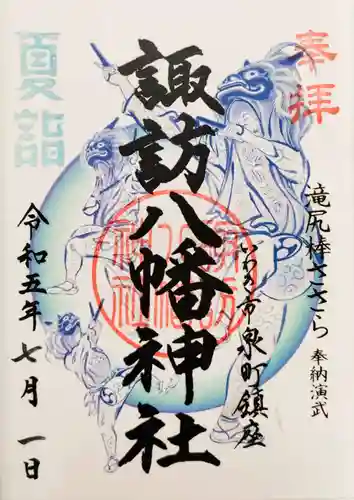 奉拝
滝尻棒ささら 奉納演武
いわき市泉町鎮座
諏訪八幡神社
夏詣
令和五年七月一日